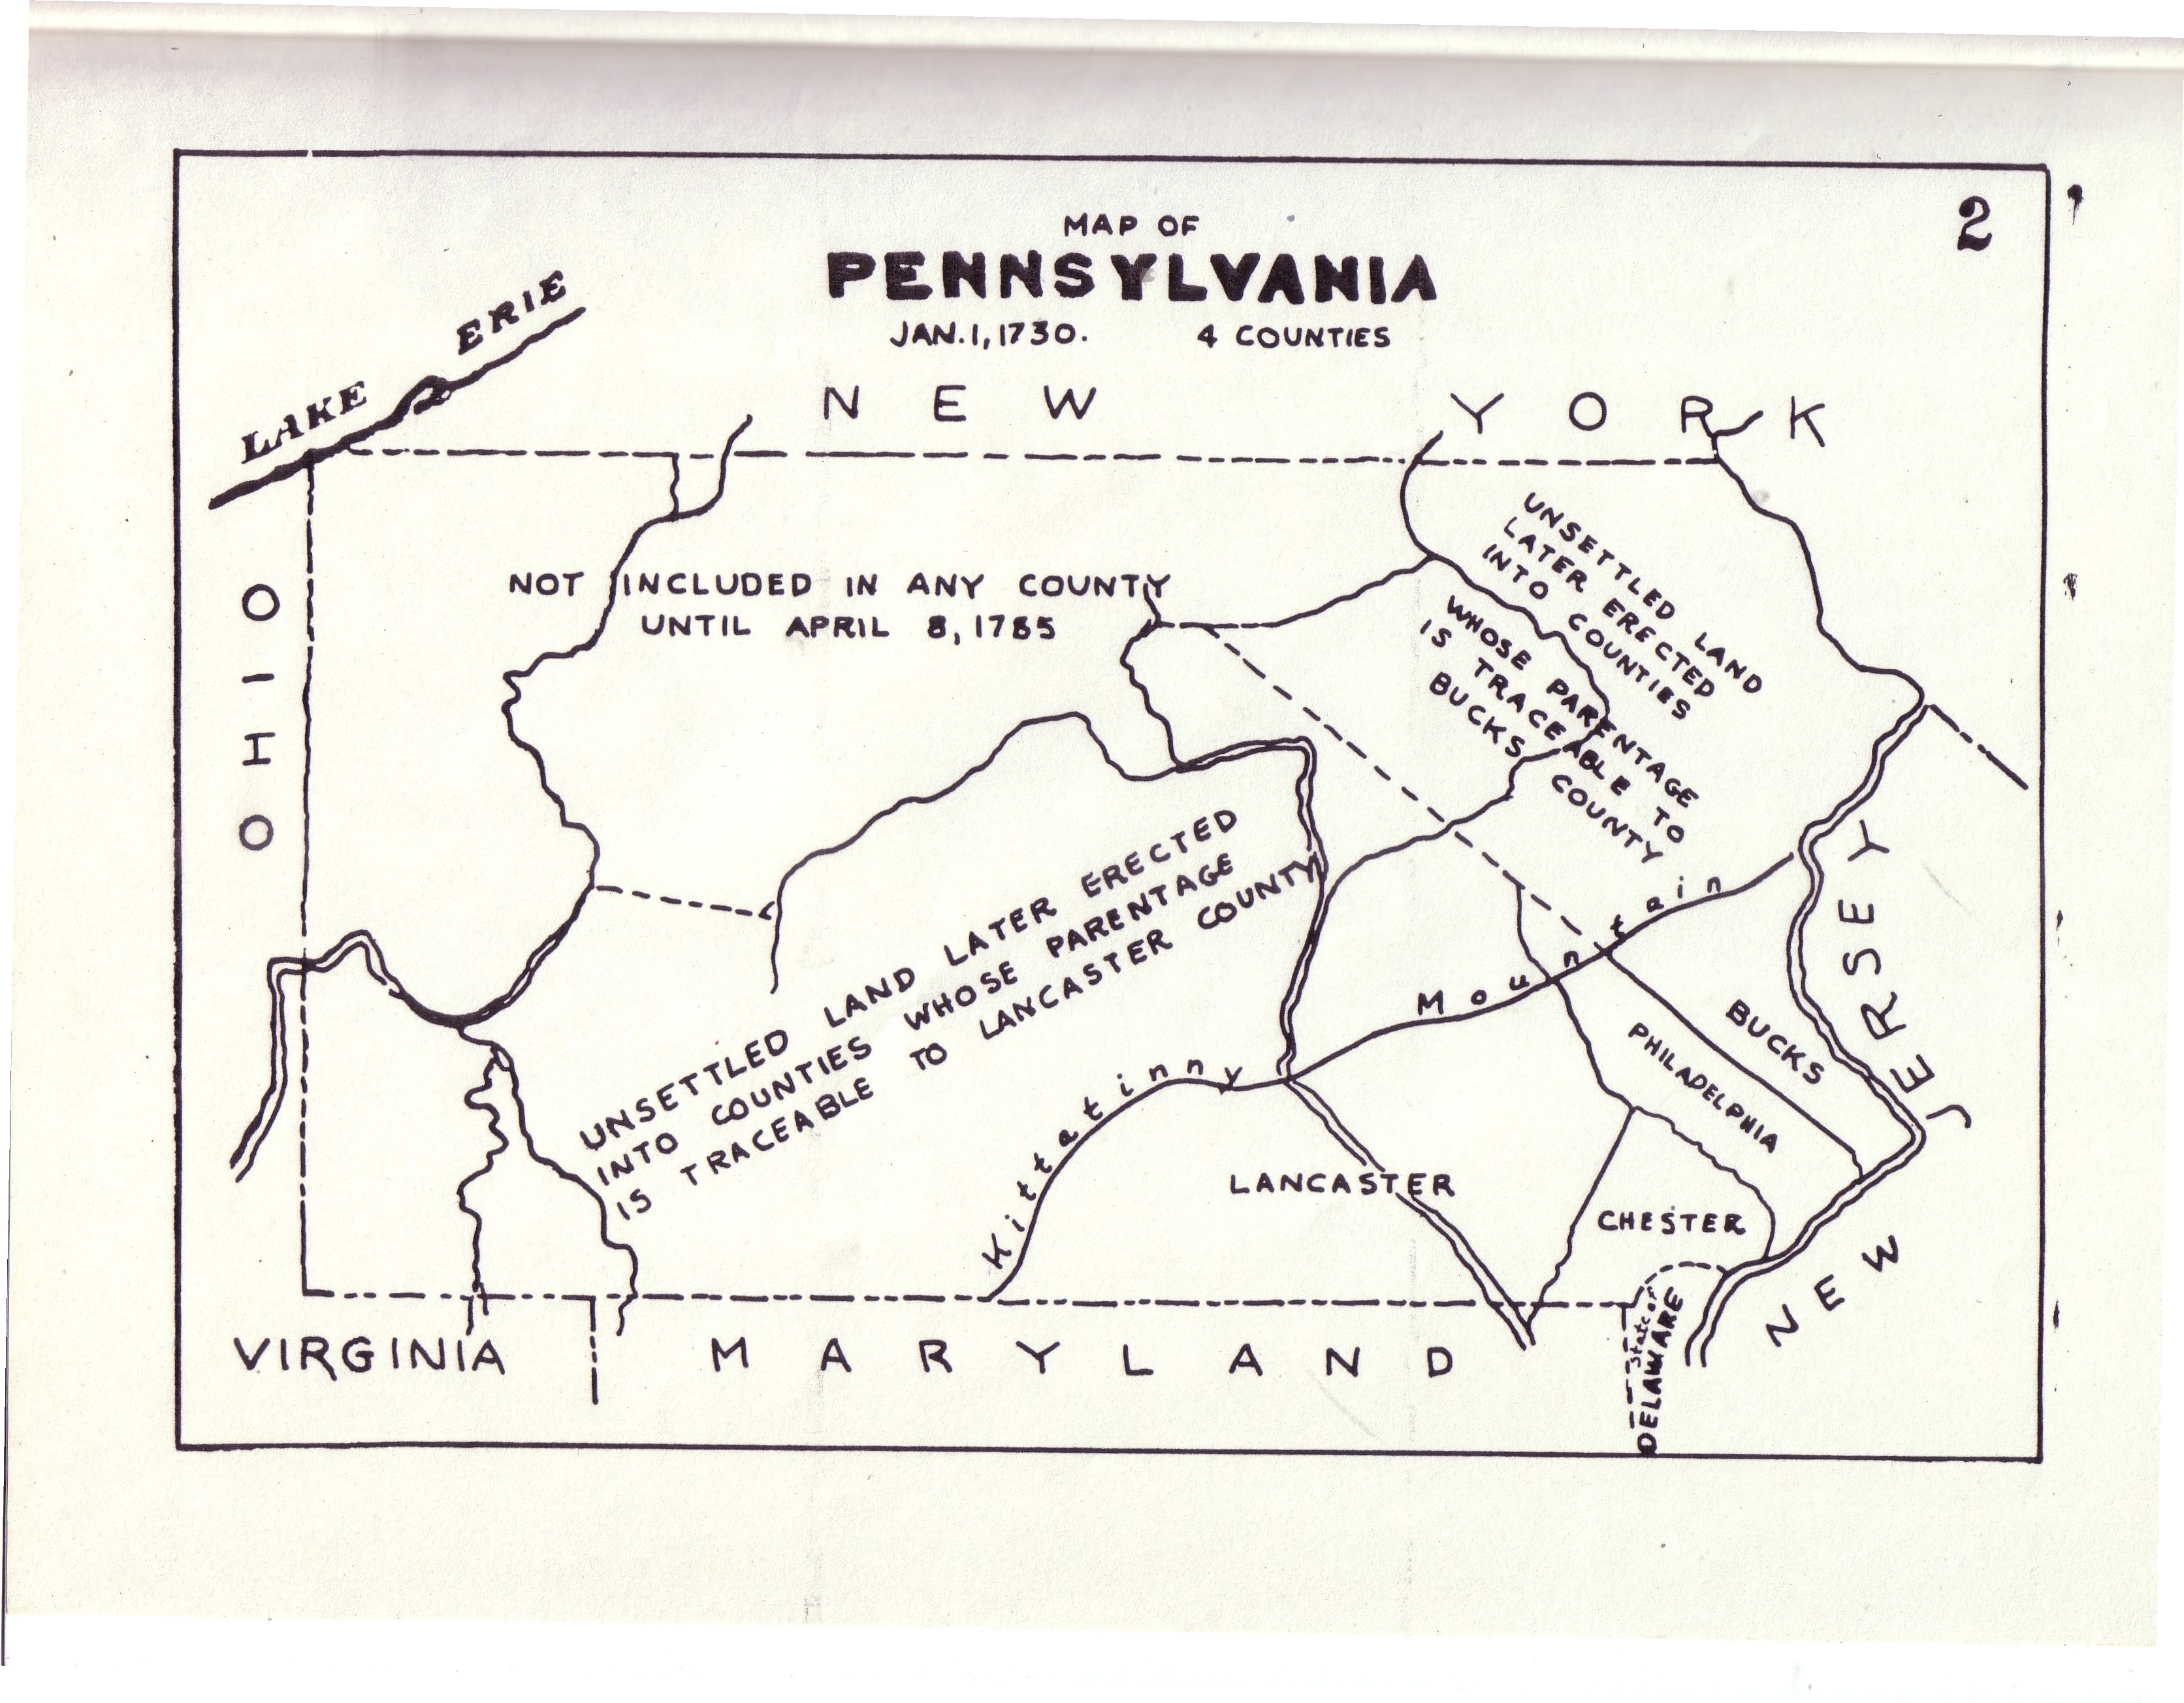 2
MAP OF
PENNSYLVANIA
JAN. 1, 1730. 4 COUNTIES
LAKE ERIE
NEW YORK
OHIO
NOT INCLUDED IN ANY COUNTY
UNTIL APRIL 8, 1785
UNSETTLED LAND
LATER ERECTED
INTO COUNTIES
WHOSE PARENTAGE
IS TRACEABLE TO
BUCKS COUNTY
UNSETTLED LAND LATER ERECTED
INTO COUNTIES WHOSE PARENTAGE
IS TRACEABLE TO LANCASTER COUNTY
Kittatinny Mountain
BUCKS
PHILADELPHIA
LANCASTER
CHESTER
NEW JERSEY
State of
DELAWARE
VIRGINIA
MARYLAND